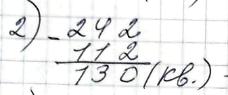 2) - 242
112
130 (кв.)